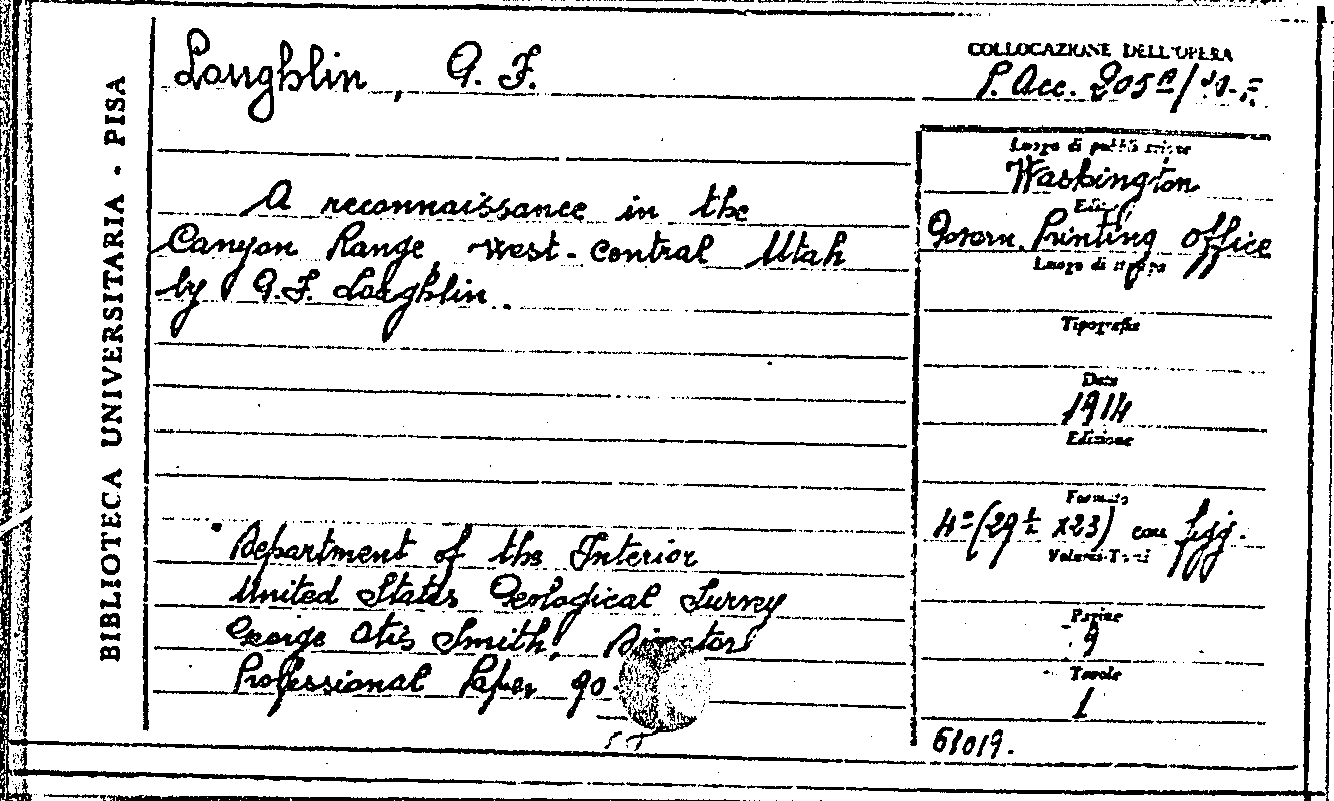 BIBLIOTECA UNIVERSITARIA - PISA
Loughlin, G. F.
A reconnaissance in the
Canyon Range, West-central Utah
by G.F. Loughlin.
Department of the Interior
United States Geological Survey
George Otis Smith, Director
Professional Paper 90.
COLLOCAZIONE DELL'OPERA
P. Acc. 205
Luogo di pubblicazione
Washington
Govern. Printing office
Luogo di stampa
Tipografia
Data
1914
Edizione
Formato
4º (29½ x23) con figg.
Volumi-Tomi
Pagine
9
Tavole
1
61019.